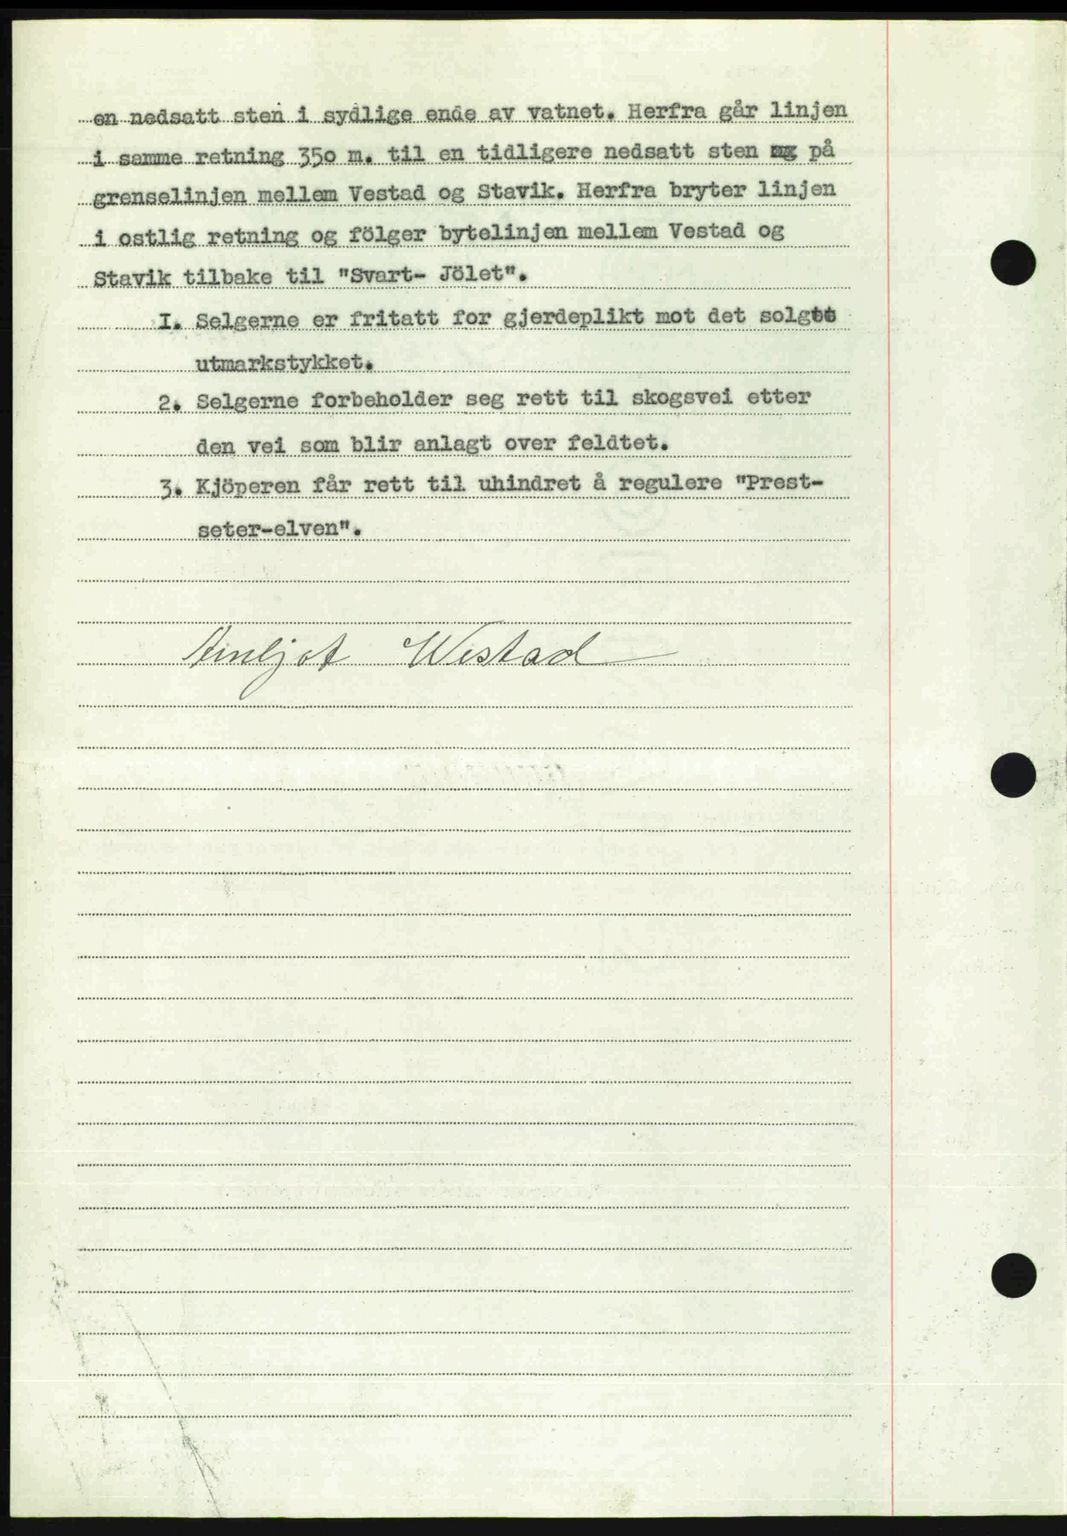 en nedsatt sten i sydlige ende av vatnet. Herfra går linjen
i samme retning 350 m. til en tidligere nedsatt sten på
grenselinjen mellem Vestad og Stavik. Herfra bryter linjen
i ostlig retning og fölger bytelinjen mellem Vestad og
Stavik tilbake til "Svart- Jölet".
I. Selgerne er fritatt for gjerdeplikt mot det solgte
utmarkstykket.
2. Selgerne forbeholder seg rett til skogsvei etter
den vei som blir anlagt over feldtet.
3. Kjöperen får rett til uhindret å regulere "Prest-
seter-elven".
Arnljot Westad